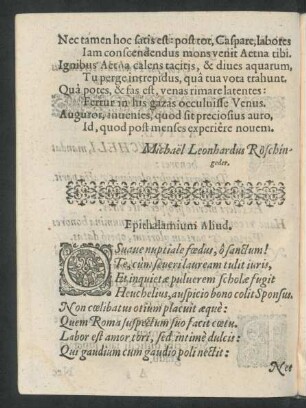 Nec tamen hoc satis est: post tot, Caspare, labores
Iam conscendendus mons venit Aetna tibi.
Ignibus Aetna calens tacitis, & diues aquarum,
Tu perge intrepidus, quà tua vota trahunt.
Quà potes, & fas est, venas rimare latentes:
Fertur in his gazas occuluisse Venus.
Auguror, inuenies, quod sit preciosius auro,
Id, quod post menses experière nouem.
Michaël Leonhardus Röschin-
geder.
Epithalamium Aliud.
O Suaue nuptiale fœdus, ô sanctum!
Te, cùm severi lauream tulit iuris,
Et inquietæ pulverem scholæ fugit
Heuchelius, auspicio bono colit Sponsus.
Non cœlibatus otium placuit æquè:
Quem Roma suspectum suo facit cœtu.
Labor est amor, tori, sed intimè dulcis:
Qui gaudium cum gaudio poli nectit:
Nec